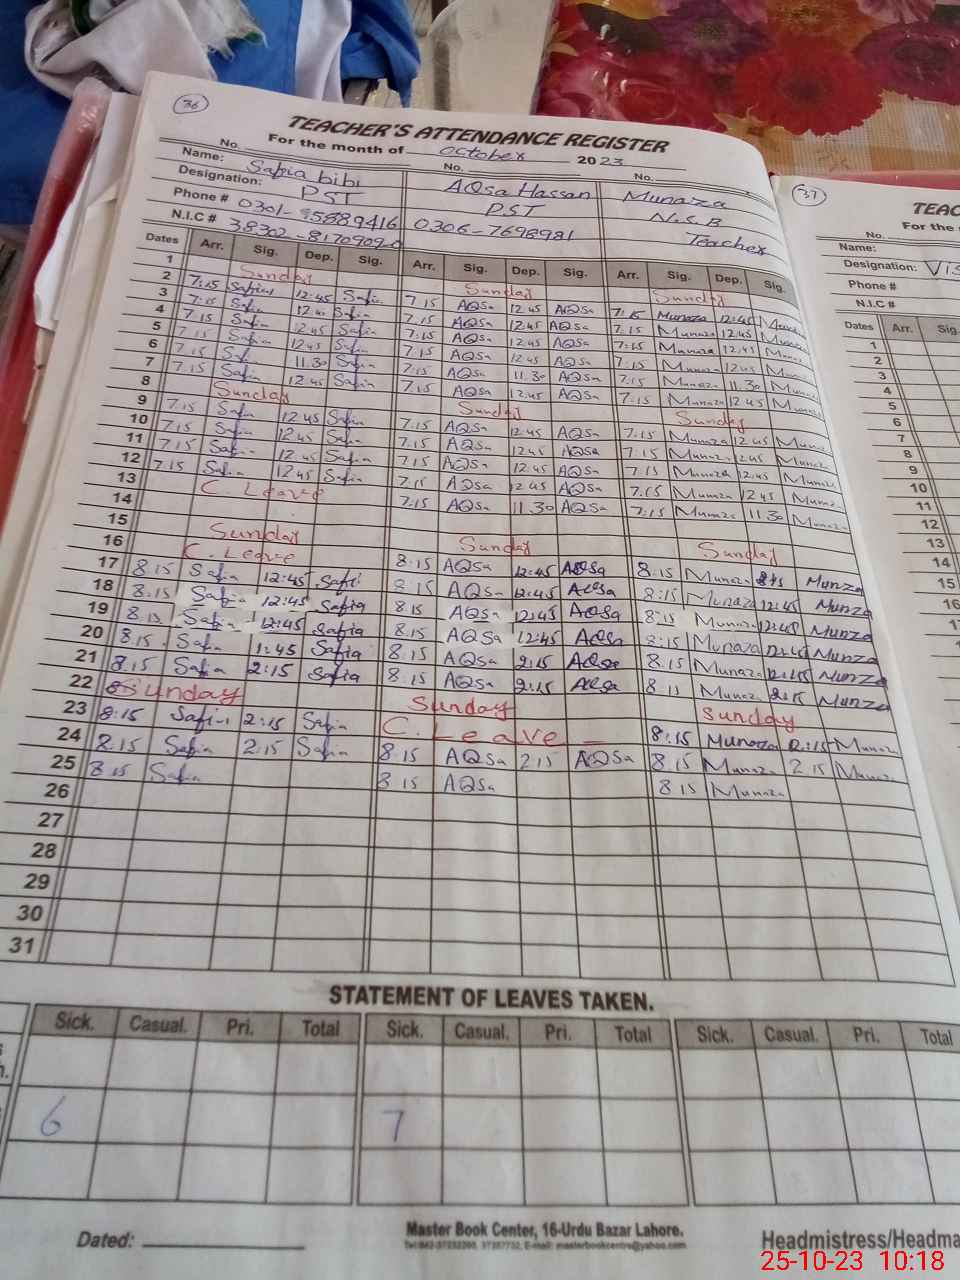 36
TEACHER'S ATTENDANCE REGISTER
For the month of October 2023
No. No. No.
Name: Safia bibi AQsa Hassan Munaza
Designation: PST PST N.S.B
Phone # 0301-95889416 0306-7698981 Teacher
N.I.C # 38302-81709090
Dates Arr. Sig. Dep. Sig. Arr. Sig. Dep. Sig. Arr. Sig. Dep. Sig.
1 Sunday Sunday Sunday
2 7:15 Safia 12:45 Safia 7.15 AQSa 12.45 AQSa 7:15 Munaza 12:45
3 7:15 Safia Safia 7.15 AQSa 12.45 AQSa 7:15 Munaza 12.45
4 7.15 Safia 12.45 Safia 7:15 AQSa 12.45 AQSa 7:15 Munaza 12.45
5 7.15 Safia 12.45 Safia 7.15 AQSa 12.45 AQSa 7:15 Munaza 12.45
6 7.15 Safia 11.30 Safia 7.15 AQSa 11.30 AQSa 7:15 Munaza 11.30
7 7.15 Safia 12.45 Safia 7.15 AQSa 12.45 AQSa 7:15 Munaza 12.45
8 Sunday Sunday Sunday
9 7.15 Safia 12.45 Safia 7.15 AQSa 12.45 AQSa 7:15 Munaza 12.45
10 7.15 Safia 12.45 Safia 7.15 AQSa 12.45 AQSa 7:15 Munaza 12.45
11 7.15 Safia 12.45 Safia 7.15 AQSa 12.45 AQSa 7:15 Munaza 12.45
12 7.15 Safia 12.45 Safia 7.15 AQSa 12.45 AQSa 7.15 Munaza 12.45
13 C. Leave 7.15 AQSa 11.30 AQSa 7:15 Munaza 11.30
14
15 Sunday Sunday Sunday
16 C. Leave 8:15 AQSa 12:45 AQSa 8:15 Munaza Munza
17 8:15 Safia 12:45 Safi 8:15 AQSa 12:45 AQSa 8:15 Munaza 12:45 Munza
18 8:15 Safia 12:45 Safia 8.15 AQSa 12:45 AQSa 8:15 Munaza 12:45 Munza
19 8:15 Safia 12:45 Safia 8.15 AQSa 12:45 AQSa 8:15 Munaza 12:45 Munza
20 8:15 Safia 1:45 Safia 8:15 AQSa 2:15 AQSa 8.15 Munaza 2:15 Munza
21 8:15 Safia 2:15 Safia 8:15 AQSa 2:15 AQSa 8.15 Munaza 2:15 Munza
22 Sunday Sunday Sunday
23 8:15 Safia 2:15 Safia C. Leave 8:15 Munaza 2:15 Munaza
24 8.15 Safia 2:15 Safia 8:15 AQSa 2.15 AQSa 8:15 Munaza 2.15 Munaza
25 8.15 Safia 8.15 AQSa 8.15 Munaza
26
27
28
29
30
31
STATEMENT OF LEAVES TAKEN.
Sick. Casual. Pri. Total Sick. Casual. Pri. Total Sick. Casual. Pri. Total
6 7
Dated:
Master Book Center, 16-Urdu Bazar Lahore.
Headmistress/Headma
37
TEAC
For the
No.
Name:
Designation: Vis
Phone #
N.I.C #
Dates Arr. Sig.
1
2
3
4
5
6
7
8
9
10
11
12
13
14
15
16
25-10-23 10:18